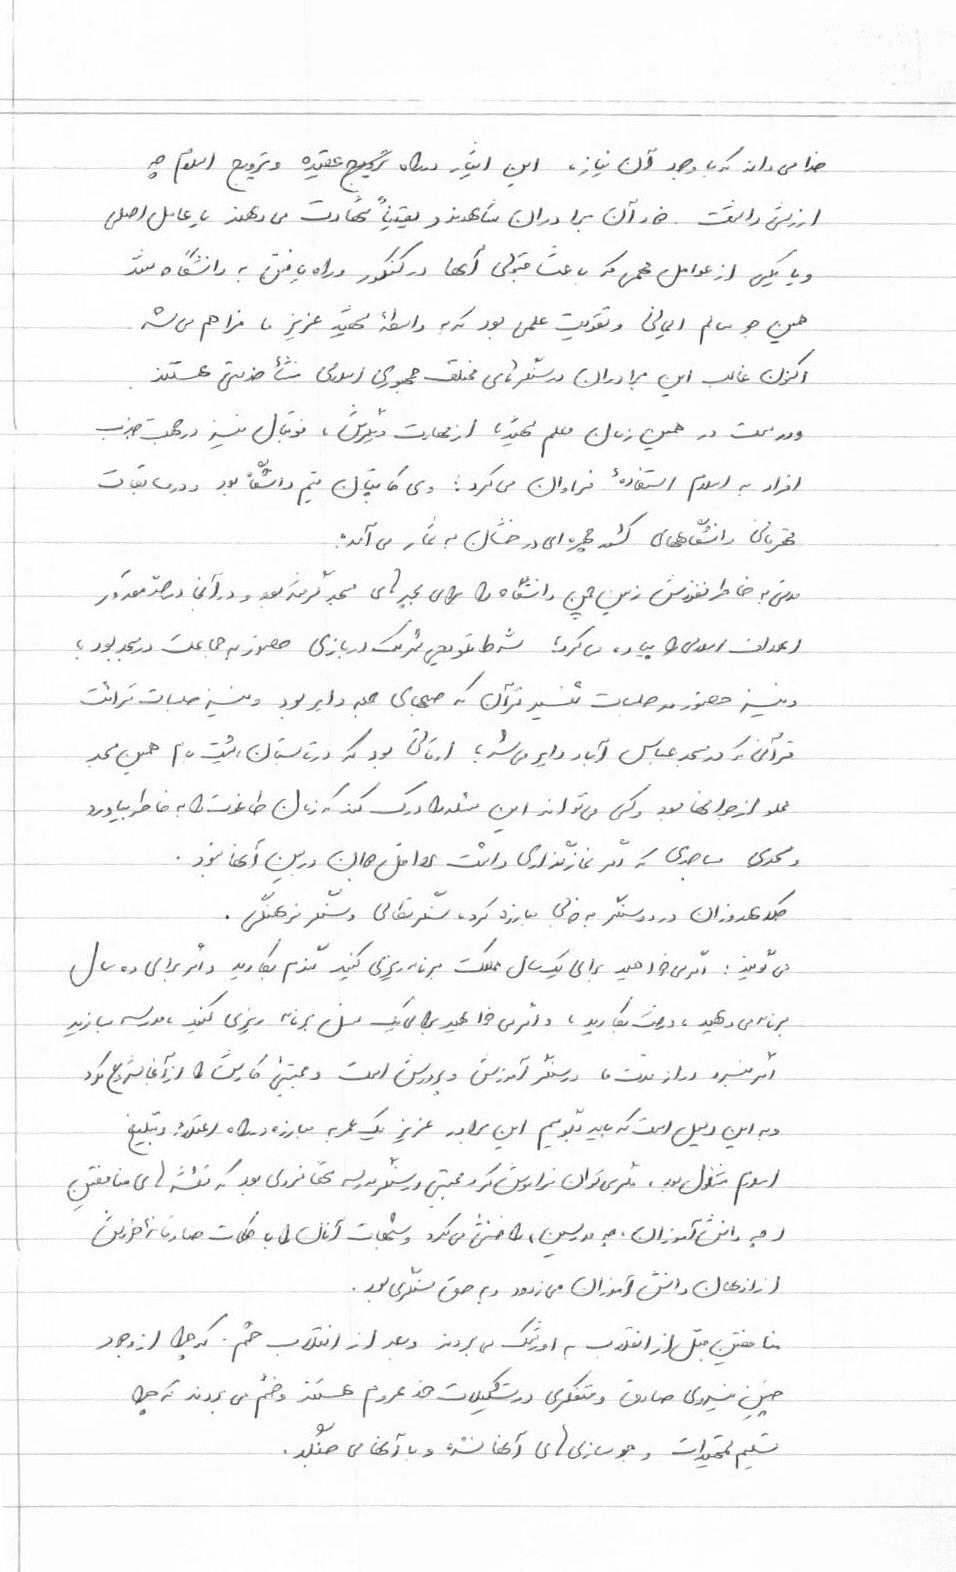 خدا می داند که با وجود آن نیاز، این ایثار در راه ترویج عقیده و ترویج اسلام چه
ارزشی داشت. خود آن برادران شاهدند و یقیناً شهادت می دهند یا عامل اصلی
و یا یکی از عوامل مهمی که باعث قبولی آنها در کنکور و راه یافتن به دانشگاه شد
همین جو سالم ایمانی و تقویت علمی بود که به واسطۀ شهید عزیز ما فراهم می شد
اکنون غالب این برادران در سنگرهای مختلف جمهوری اسلامی منشأ خدمتی هستند
و درست در همین زمان معلم شهید ما از مهارت دیگرش، فوتبال نیز در جهت جذب
افراد به اسلام استفادۀ فراوان می کرد؛ وی کاپیتان تیم دانشگاه بود و در مسابقات
قهرمانی دانشگاههای کشور چهره ای درخشان به شمار می آمد.
مدتی به خاطر نفوذش زمین چمن دانشگاه را برای بچه های مسجد گرفته بود و در آنجا درصد مقدور
اهداف اسلامی را پیاده می کرد؛ شرط تلویحی شرکت در بازی حضور به جماعت در مسجد بود،
و نیز حضور در جلسات تفسیر قرآن که صبحهای جمعه دایر بود و نیز جلسات قرائت
قرآنی که در مسجد عباس آباد دایر می شد؛ اوقاتی بود که در تابستان، پشت بام همین مسجد
مملو از جوانها بود و کسی می تواند این مسئله را درک کند که زمان طاغوت را به خاطر بیاورد
و مسجدی مساجدی که اگر نمازگذاری داشت لااقل جوان در بین آنها نبود.
جلال عبدوزان در دو سنگر به خوبی مبارزه کرد، سنگر نظامی و سنگر فرهنگی.
می گویند: اگر می خواهید برای یک سال مملکت برنامه ریزی کنید گندم بکارید و اگر برای ده سال
برنامه می دهید، درخت بکارید، و اگر می خواهید برای یک نسل برنامه ریزی کنید، مدرسه بسازید
اثر نیرو دراز مدت ما در سنگر آموزش و پرورش است و مجتبی کارش را از آنجا شروع کرد
و به این دلیل است که باید بگوییم این برادر عزیز یک عمر به مبارزه در راه اعتلاء و تبلیغ
اسلام مشغول بود، مگر می توان فراموش کرد مجتبی در سنگر مدرسه تنها فردی بود که نقشه های منافقین
(چه دانش آموزان، چه مدرسین) را خنثی می کرد و شبهات آنان را با کلمات صادقانۀ خویش
از اذهان دانش آموزان می زدود و به حق سنگری بود.
منافقین قبل از انقلاب به او رشک می بردند و بعد از انقلاب خشم. که چرا از وجود
چنین نیروی صادق و متفکری در تشکیلات خود محروم هستند و خشم می بردند که چرا
تسلیم تهدیدات و جوسازی های آنها نشده و با آنها می جنگد.